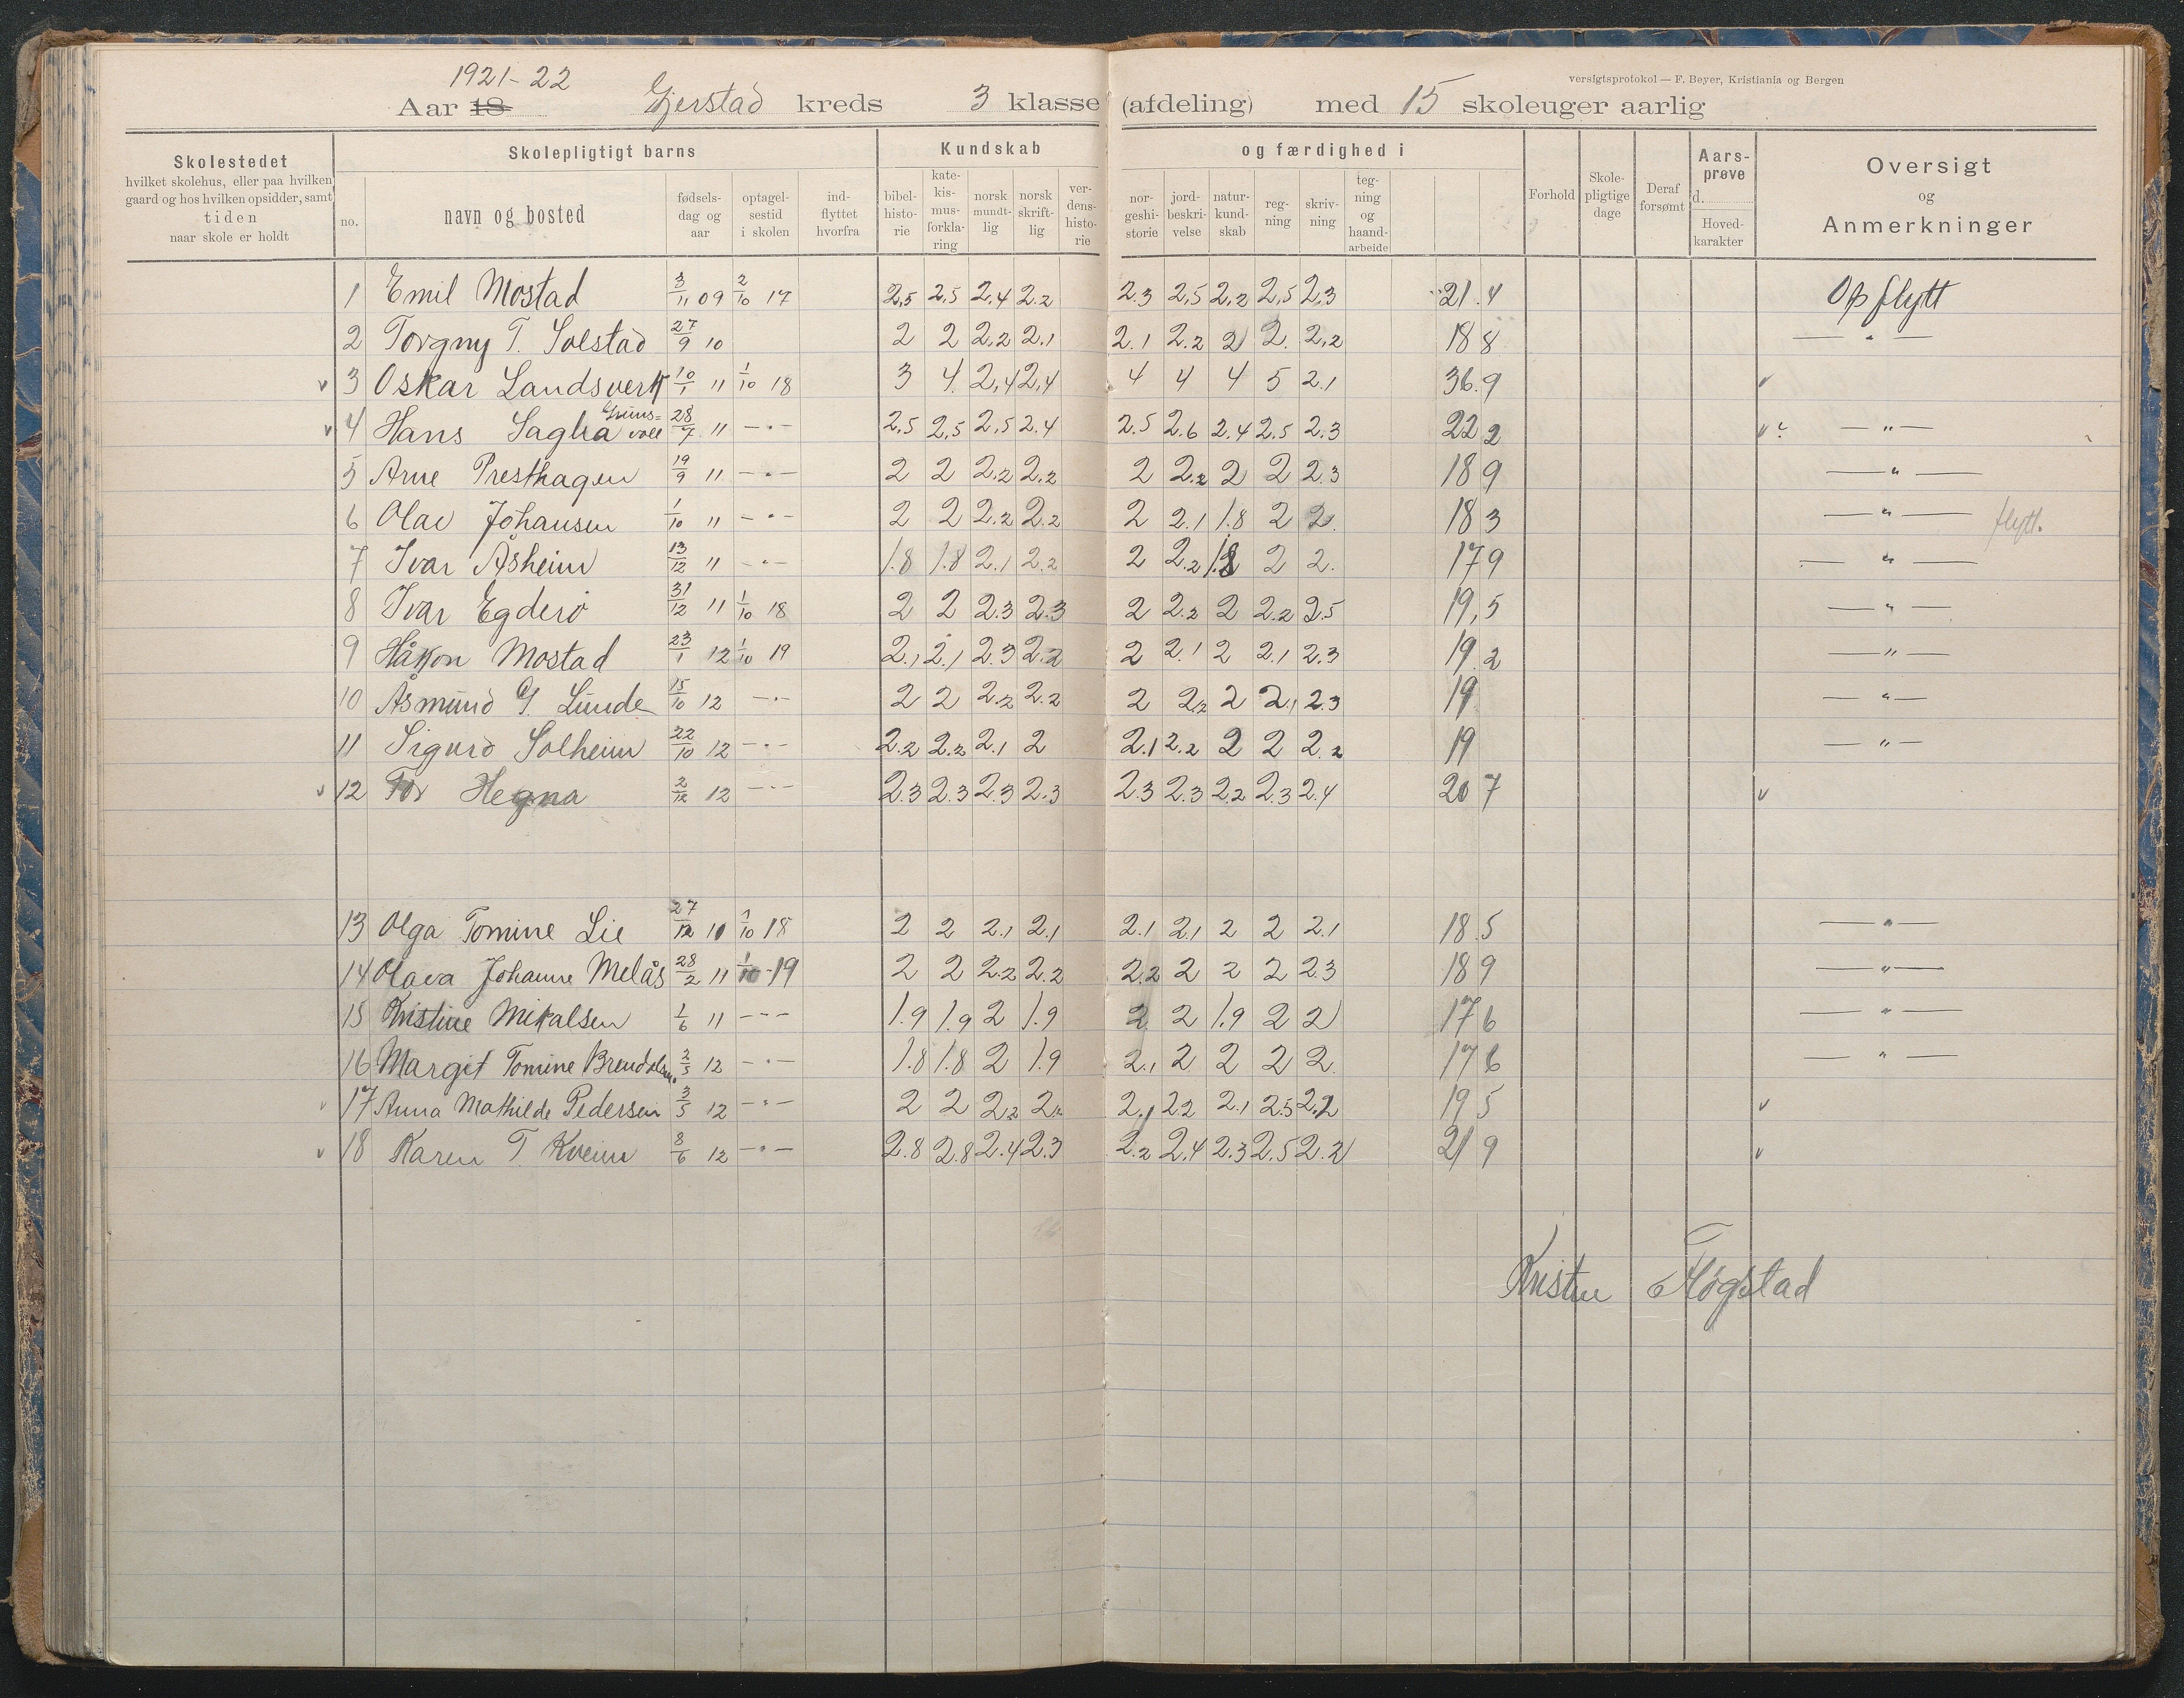 versigtsprotokol — F. Beyer, Kristiania og Bergen
1921-22
Aar 18 Gjerstad kreds 3 klasse (afdeling) med 15 skoleuger aarlig
Skolestedet
hvilket skolehus, eller paa hvilken
gaard og hos hvilken opsidder, samt
tiden
naar skole er holdt
Skolepligtigt barns
no.
navn og bosted
fødsels-
dag og
aar
optagel-
sestid
i skolen
ind-
flyttet
hvorfra
Kundskab og færdighed i
bibel-
histo-
rie
kate-
kis-
mus-
forkla-
ring
norsk
mundt-
lig
norsk
skrift-
lig
ver-
dens-
histo-
rie
nor-
geshi-
storie
jord-
beskri-
velse
natur-
kund-
skab
reg-
ning
skriv-
ning
teg-
ning
og
haand-
arbeide
Forhold
Skole-
pligtige
dage
Deraf
forsømt
Aars-
prøve
d.
Hoved-
karakter
Oversigt
og
Anmerkninger
1 Emil Mostad 3/11 09 2/10 17 2,5 2,5 2,4 2.2 2.3 2,5 2,2 2,5 2,3 21.4 Opflytt
2 Torgny T. Solstad 27/9 10 2 2 2,2 2,1 2.1 2.2 2 2. 2,2 18 8 — " —
v 3 Oskar Landsverk 10/1 11 1/10 18 3 4. 2,4 2,4 4 4 4 5 2.1 36.9 v
v 4 Hans Saglia Gruns= voll 28/7 11 — " — 2,5 2,5 2,5 2.4 2.5 2.6 2.4 2.5 2.3 22 2 v? — " —
5 Arne Presthagen 19/9 11 — " — 2 2 2.2 2.2 2 2.2 2 2 2.3 18 9 — " —
6 Olav Johansen 1/10 11 — " — 2 2 2.2 2.2 2 2.1 1.8 2 2. 18 3 — " — flytt.
7 Ivar Åsheim 13/12 11 — " — 1.8 1.8 2.1 2.2 2 2.2 1.8 2 2. 17 9 — " —
8 Ivar Egderø 31/12 11 1/10 18 2 2 2.3 2.3 2 2.2 2 2.2 2.5 19,5 — " —
9 Håkon Mostad 23/1 12 1/10 19 2.1 2.1 2.3 2.2 2 2.1 2 2.1 2.3 19.2 — " —
10 Åsmund G. Lunde 15/10 12 — " — 2 2 2.2 2.2 2 2.2 2 2.1 2.3 19 — " —
11 Sigurd Solheim 22/10 12 — " — 2.2 2.2 2.1 2 2.1 2.2 2 2 2.2 19 — " —
v 12 Tor Hegna 2/12 12 — " — 2.3 2.3 2.3 2.3 2.3 2.3 2.2 2.3 2.4 20 7 v
13 Olga Tomine Lie 27/12 10 1/10 18 2 2 2.1 2.1 2.1 2.1 2 2 2.1 18.5 — " —
14 Olava Johanne Melås 28/2 11 1/10 19 2 2 2.2 2.2 2.2 2 2 2 2.3 18 9 — " —
15 Kristine Mikalsen 1/6 11 — " — 1.9 1.9 2 1.9 2 2 1.9 2 2 17 6 — " —
16 Margit Tomine Brendalsmo 2/5 12 — " — 1.8 1.8 2 1.9 2.1 2 2 2 2 17 6 — " —
v 17 Anna Mathilde Pedersen 3/5 12 — " — 2 2 2.2 2.2 2.1 2.2 2.1 2.5 2.2 19 5 v
v 18 Karen T. Kveim 8/6 12 — " — 2.8 2.8 2.4 2.3 2.2 2.4 2.3 2.5 2.2 21 9 v
Kristen Fløgstad